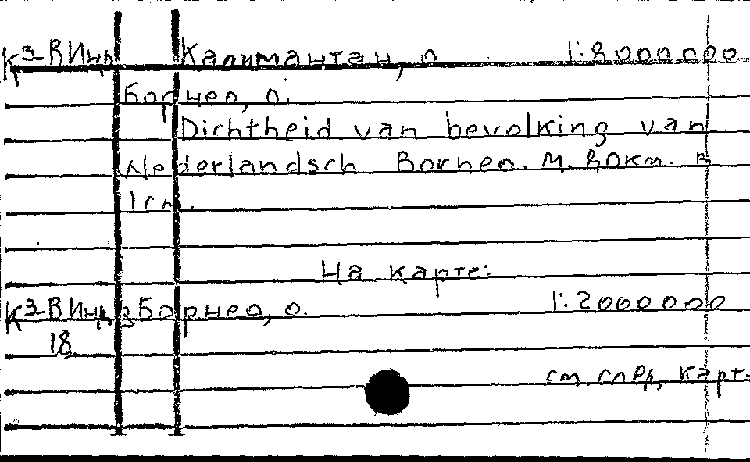 К3-ВИнд Калимантан, о. 1:8000000
Борнео, о.
Dichtheid van bevolking van
Nederlandsch Borneo. М. 80км. в
1см.
На карте:
К3-ВИнд Борнео, о. 1:2000000
18
см. след. карт.